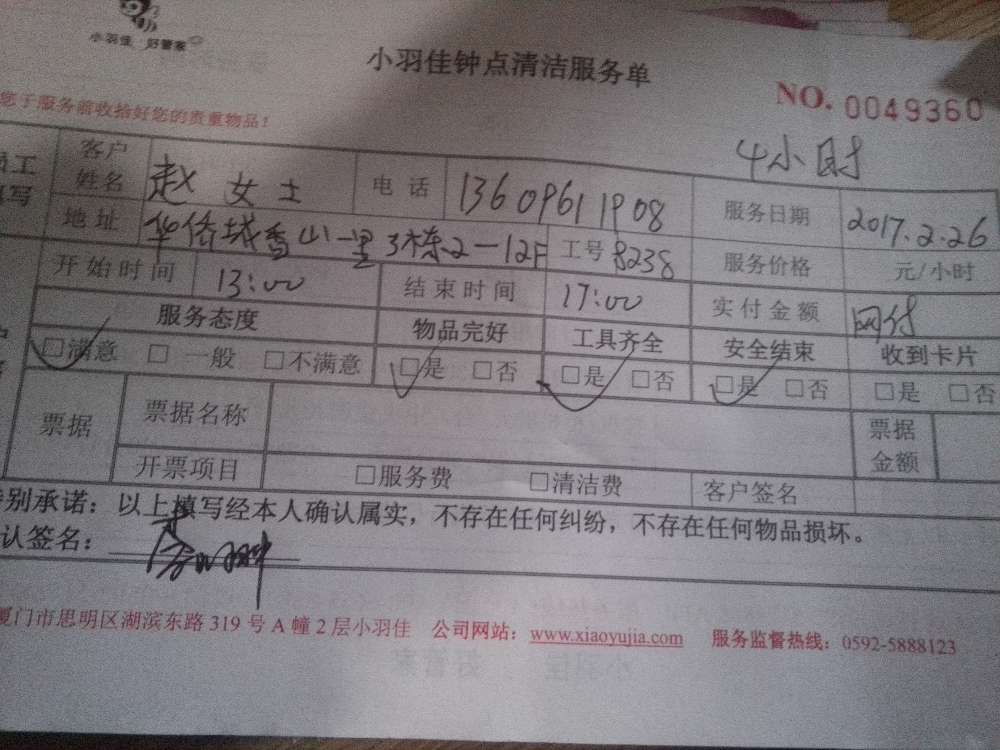 小羽佳 好管家
小羽佳钟点清洁服务单
NO. 0049360
您于服务前收拾好您的贵重物品!
4小时
客户姓名 赵女士 电话 13609611908 服务日期 2017.2.26
地址 华侨城香山一里3栋2-12F 工号 8238 服务价格 元/小时
开始时间 13:00 结束时间 17:00 实付金额 网付
服务态度 物品完好 工具齐全 安全结束 收到卡片
□满意 □一般 □不满意 □是 □否 □是 □否 □是 □否 □是 □否
票据 票据名称 票据金额
开票项目 □服务费 □清洁费 客户签名
特别承诺:以上填写经本人确认属实,不存在任何纠纷,不存在任何物品损坏。
认签名:
厦门市思明区湖滨东路319号A幢2层小羽佳 公司网站:www.xiaoyujia.com 服务监督热线:0592-5888123